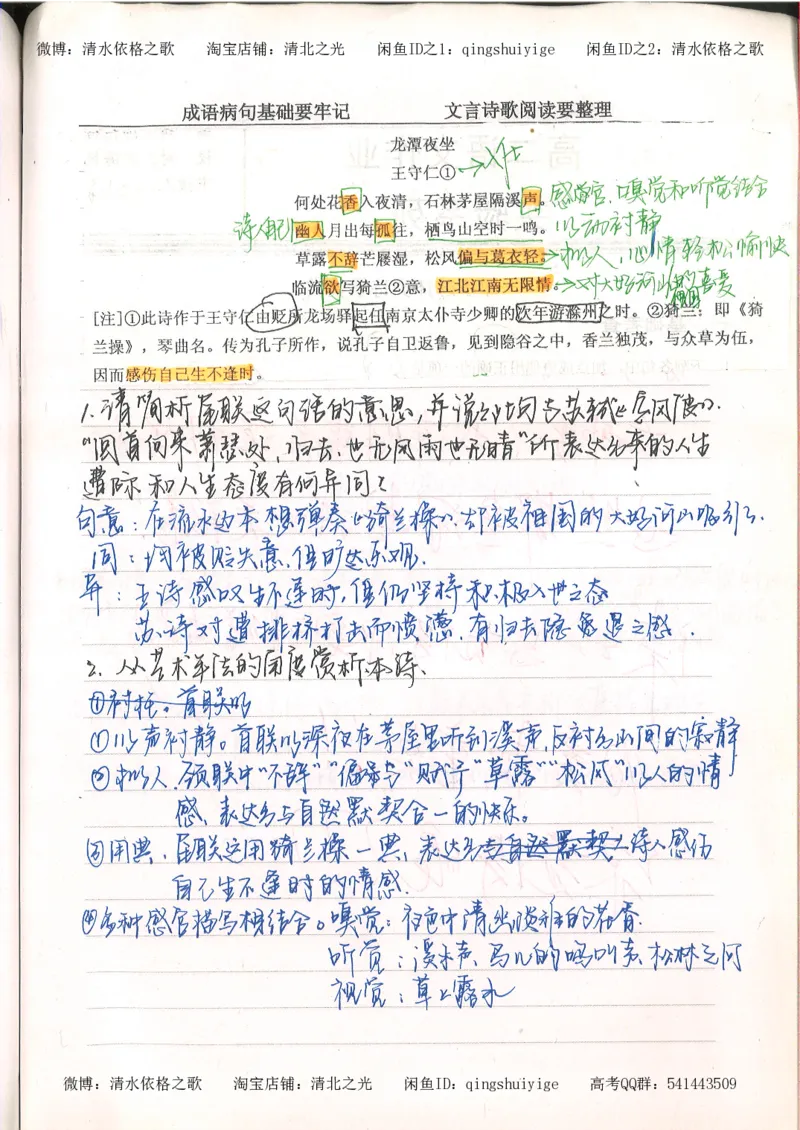 微博：清水依格之歌 淘宝店铺：清北之光 闲鱼ID之1：qingshuiyige 闲鱼ID之2：清水依格之歌
成语病句基础要牢记 文言诗歌阅读要整理
龙潭夜坐
王守仁① →入仕
何处花香入夜清，石林茅屋隔溪声。感觉官、嗅觉和听觉结合
诗人自己 幽人月出每孤往，栖鸟山空时一鸣。以动衬静
草露不辞芒屦湿，松风偏与葛衣轻。→拟人，心情轻松愉快
临流欲写猗兰②意，江北江南无限情。→对大好河山的喜爱
[注]①此诗作于王守仁由贬所龙场驿起任南京太仆寺少卿的次年游滁州之时。②猗兰：即《猗
兰操》，琴曲名。传为孔子所作，说孔子自卫返鲁，见到隐谷之中，香兰独茂，与众草为伍，
因而感伤自己生不逢时。
1.请简析尾联这句话的意思，并说说此句与苏轼《定风波》.
“回首向来萧瑟处，归去，也无风雨也无晴”所表达出来的人生
遭际和人生态度有何异同？
句意：在流水边本想弹奏《猗兰操》，却被祖国的大好河山吸引了.
同：均被贬失意，但旷达乐观.
异：王诗感叹生不逢时，但仍坚持积极入世之态
苏诗对遭排挤打击而愤懑，有归去隐逸退之感.
2.从艺术手法的角度赏析本诗、
①衬托。首联以
①以声衬静。首联以深夜在茅屋里听到溪声，反衬出山间的寂静
②拟人，颈联中“不辞”“偏与”赋予“草露”“松风”以人的情
感，表达出与自然默契合一的快乐。
③用典，尾联运用猗兰操一典，表达出与自然默契 诗人感伤
自己生不逢时的情感.
④多种感官描写相结合。嗅觉：夜色中清幽淡雅的花香.
听觉：溪水声、鸟儿的鸣叫声、松林之间
视觉：草上露水
微博：清水依格之歌 淘宝店铺：清北之光 闲鱼ID：qingshuiyige 高考QQ群：541443509